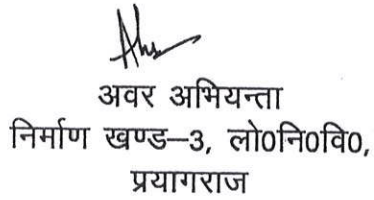 अवर अभियन्ता
निर्माण खण्ड–3, लो0नि0वि0,
प्रयागराज